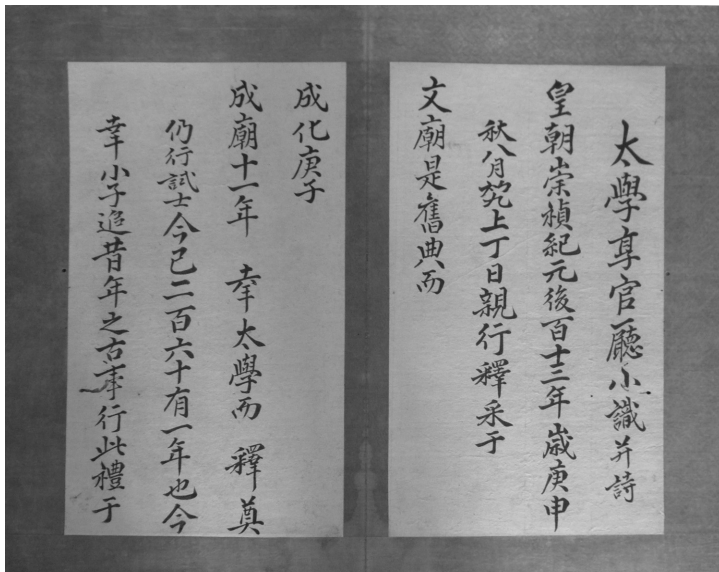 太學享官廳小識并詩
皇朝崇禎紀元後百十三年歲庚申
秋八月上丁日親行釋采于
文廟是舊典而
成化庚子
成廟十一年 幸太學而 釋奠
仍行試士今已二百六十有一年也今
幸小子追昔年之古事行此禮于